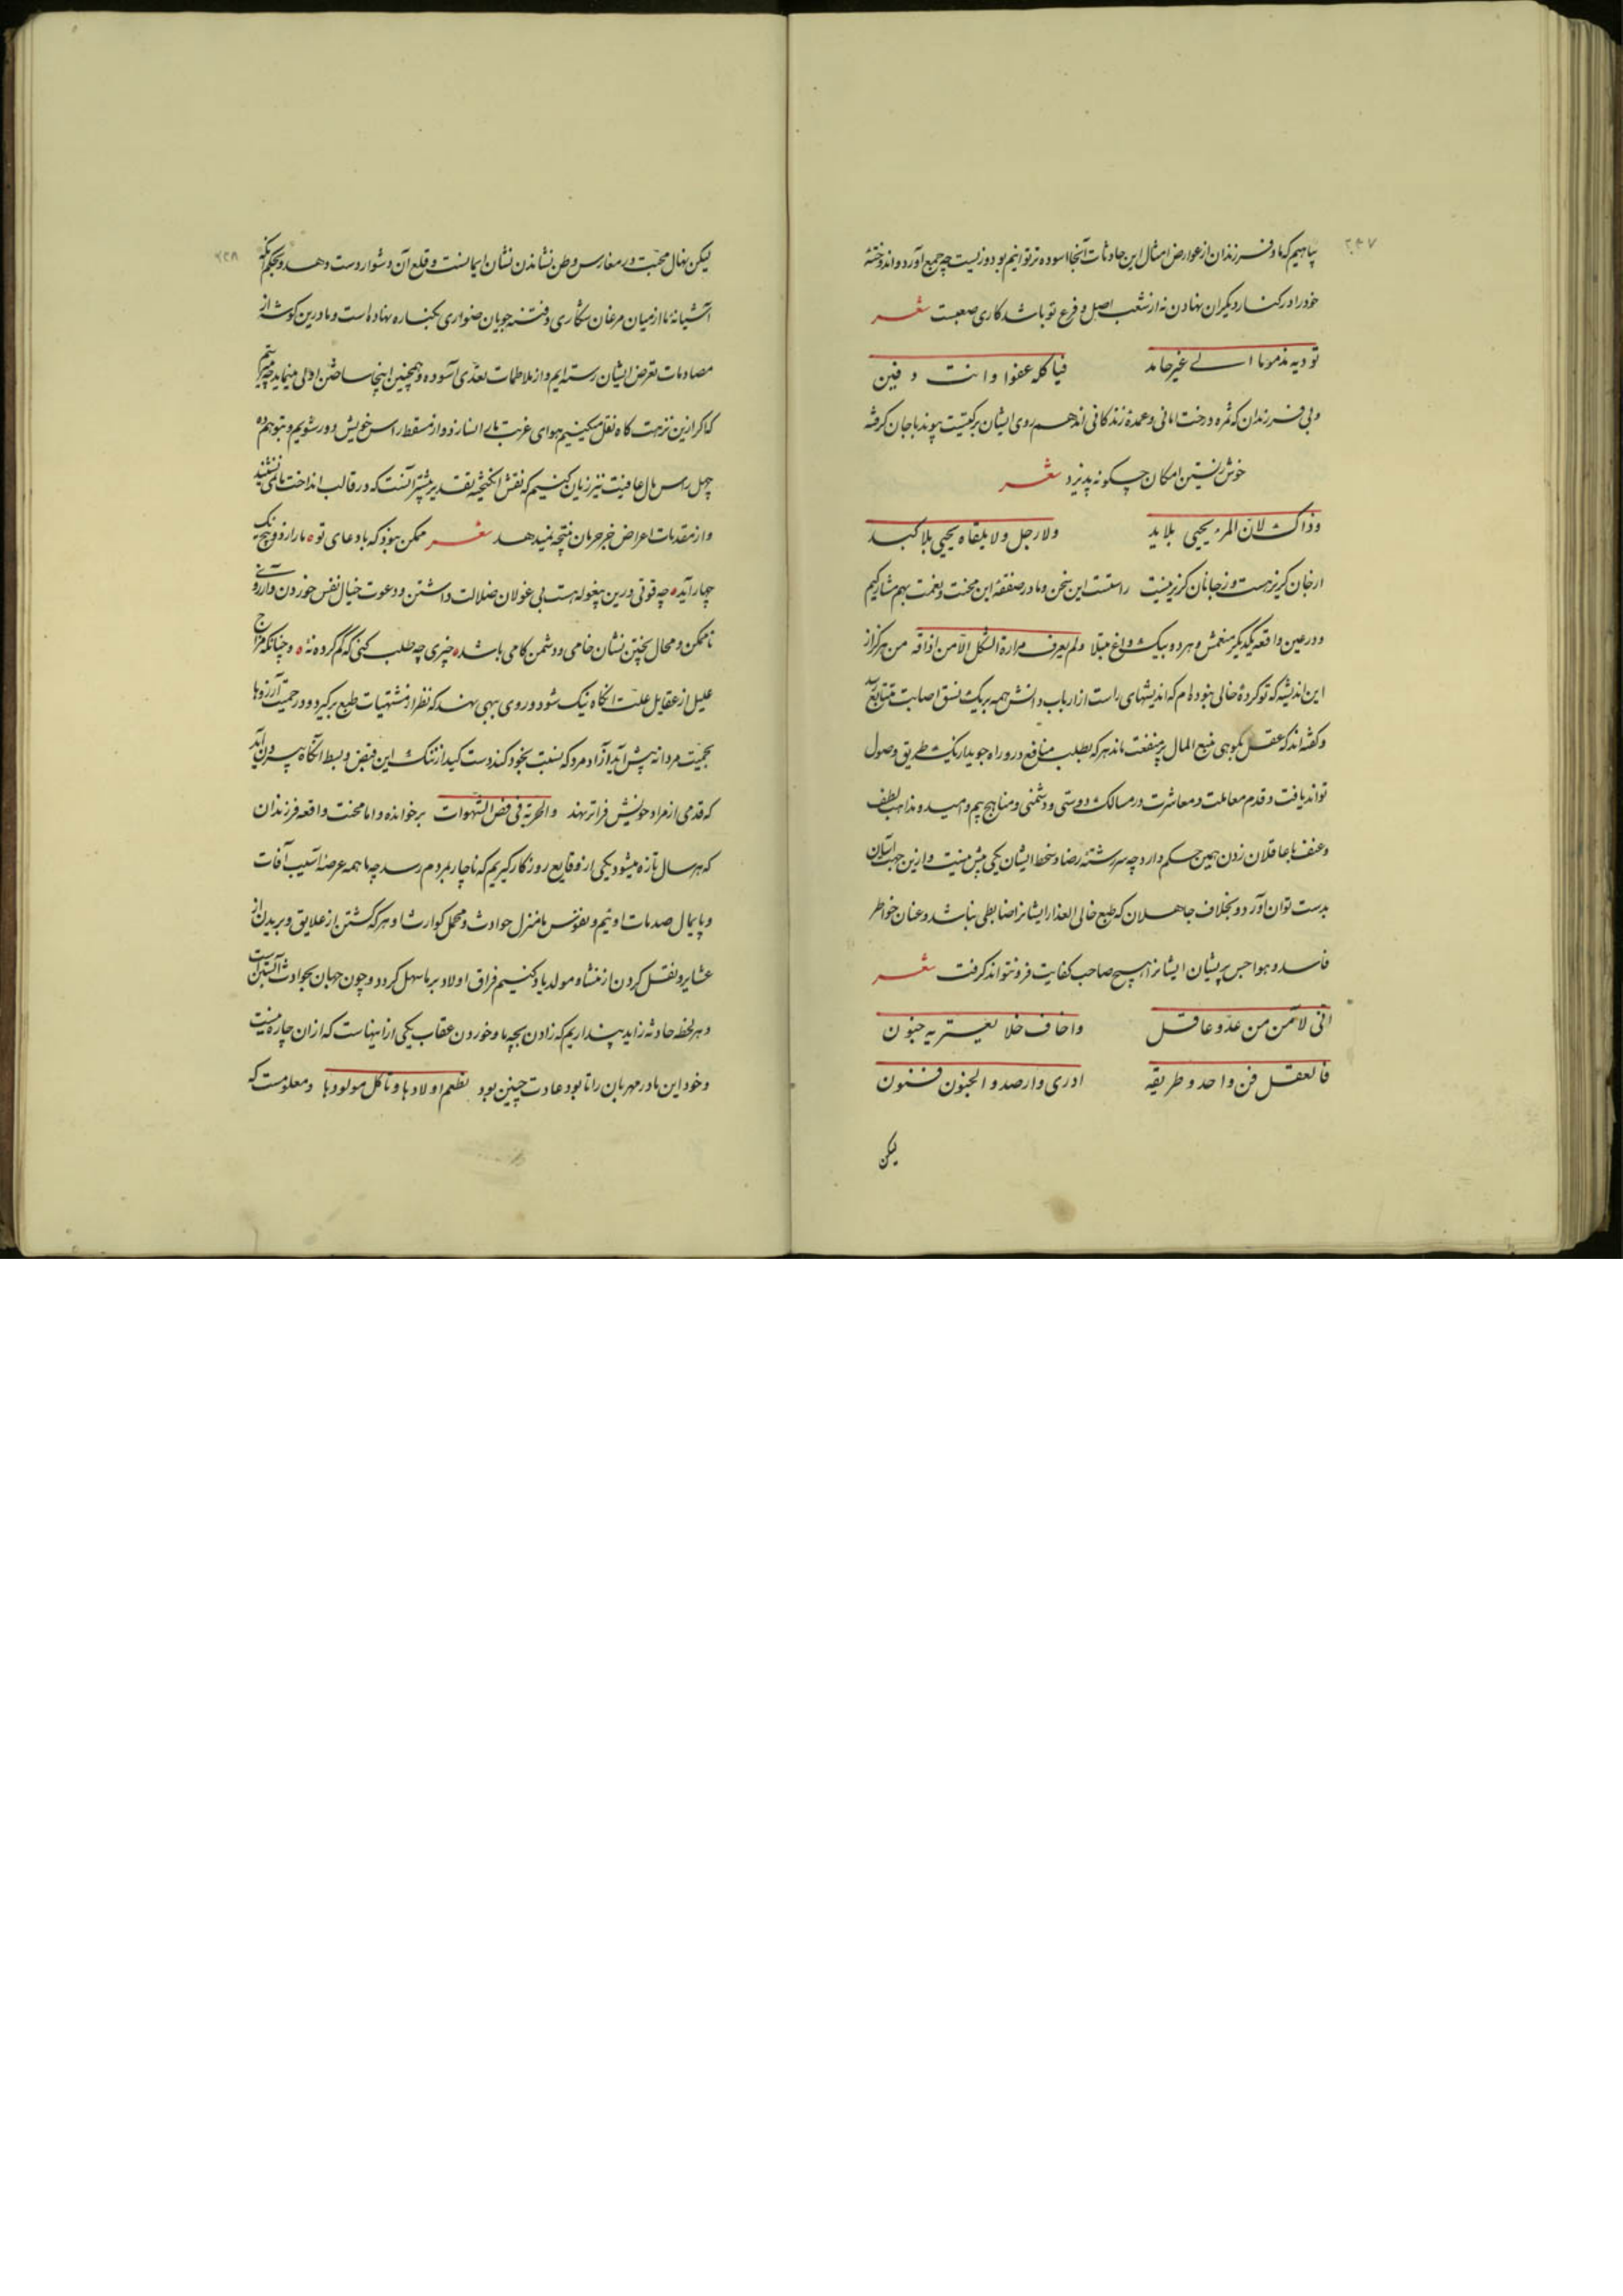 ۲۴۷
پناهیم که ما و فرزندان از عوارض امثال این حادثات آنجا آسوده‌تر توانیم بود و زیست چه جمع آورد و اندوختهٔ
خود را در کنار دیگران نهادن نه از شعب اصل و فرع تو باشد کاری صعبست شعر
تودیه مذموما الی غیر حامد فیاکله عفوا وانت دفین
و بی فرزندان که ثمره درخت امانی و عمدهٔ زندگانی‌اند هم روی ایشان بر کیتیت پیوند با جان گرفته
خوش زیستن امکان چگونه پذیرد شعر
وذاک لان المرء یحیی بلا ید ولا رجل ولا یلقاه یحیی بلا کبد
از خان گریز هست و ز جانان گریز نیست راستست این سخن و ما در صفقهٔ این محنت و نعمت بهم مشارکیم
و در عین واقعه یکدیگر منغمس و هر دو بیک داغ مبتلا ولم یعرف مرارة الثکل الا من اذاقه من هرگز از
این اندیشه که تو کردهٔ خالی نبوده‌ام که اندیشهای راست از ارباب دانش همه بر یک نسق اصابت متتابع آید
و گفته‌اند که عقل بکوهی منیع المال پر منفعت ماند هر که بطلب منافع در و راه جوید از یک طریق وصول
تواند یافت و قدم معاملت و معاشرت در مسالک دوستی و دشمنی و مناهج بیم و امید و مذاهب لطف
و عنف با عاقلان زدن همین حکم دارد چه سررشته رضا و سخط ایشان یکی بیش نیست و از ین جهت آسان
بدست توان آورد و بخلاف جاهلان که طبع خالی العذار ایشانرا ضابطی نباشد و عنان خواطر
فاسد و هواجس پریشان ایشانرا هیچ صاحب کفایت فرو نتواند گرفت شعر
انی لامن من عدو عاقل واخاف خلا یعتریه جنون
فالعقل فن واحد وطریقه ادری وارصد والجنون فنون
لیکن
۲۴۸
لیکن نهال محبت در مغارس وطن نشاندن نشان ایمانست و قلع آن دشوار دست دهد و بحکم آنکه
آشیانه ما از میان مرغان شکاری و فتنه جویان ضواری بکناره نهاده است و ما در ین گوشه از
مصادمات تعرض ایشان رسته‌ایم و از ملاطمات تعدی آسوده و همچنین اینجا ساختن اولی مینماید چه میترسم
که اگر ازین نزهتگاه نقل کنیم هوای غربت ما را نسازد و از مسقط راس خویش دور شویم و بتوهم ده
چهل راس مال عافیت نیز زیان کنیم که نقش انگیختهٔ تقدیر بیشتر آنست که در قالب انداخت ما نمی نشیند
و از مقدمات اعراض جز حرمان نتیجه نمیدهد شعر ممکن نبود که بادعای تو ما را ز دو پنج یک
چهار آید چه قوتی درین پیغوله است بی غولان ضلالت داشتن و دعوت خیال نفس خوردن و آرزوی
ناممکن و محال پختن نشان خامی و دشمن کامی باشد چیزی چه طلب کنی که گم کرده نهٔ و چنانکه مزاج
علیل از عقابیل علت آنگاه نیک شود و روی ببهی نهد که نظر از مشتهیات طبع برگیرد و در حمیت آرزوها
بحمیت مردانه پیش آید آزاد مرد که نسبت بخود کند دست کید از تنگ این قبض و بسط آنگاه بیرون آید
که قدمی از مراد خویش فراتر نهد والحریة فی رفض الشهوات برخوانده و اما محنت واقعه فرزندان
که هر سال تازه میشود یکی از وقایع روزگار گیریم که ناچار بمردم رسد چه ما همه عرضهٔ آسیب آفات
و پایمال صدمات اوئیم و نفوس ما منزل حوادث و محل کوارث و هر که گشتن از علایق و بریدن از
عشایر و نقل کردن از منشا و مولد یاد کنیم فراق اولاد بر ما سهل گردد و چون جهان بحوادث آبستن است
و هر لحظه حادثه زاید پنداریم که زادن بچه ما و خوردن عقاب یکی از آنهاست که از ان چاره نیست
و خود این مادر مهربان را تا بود عادت چنین بود تطعم اولادها وتاکل مولودها و معلومست که